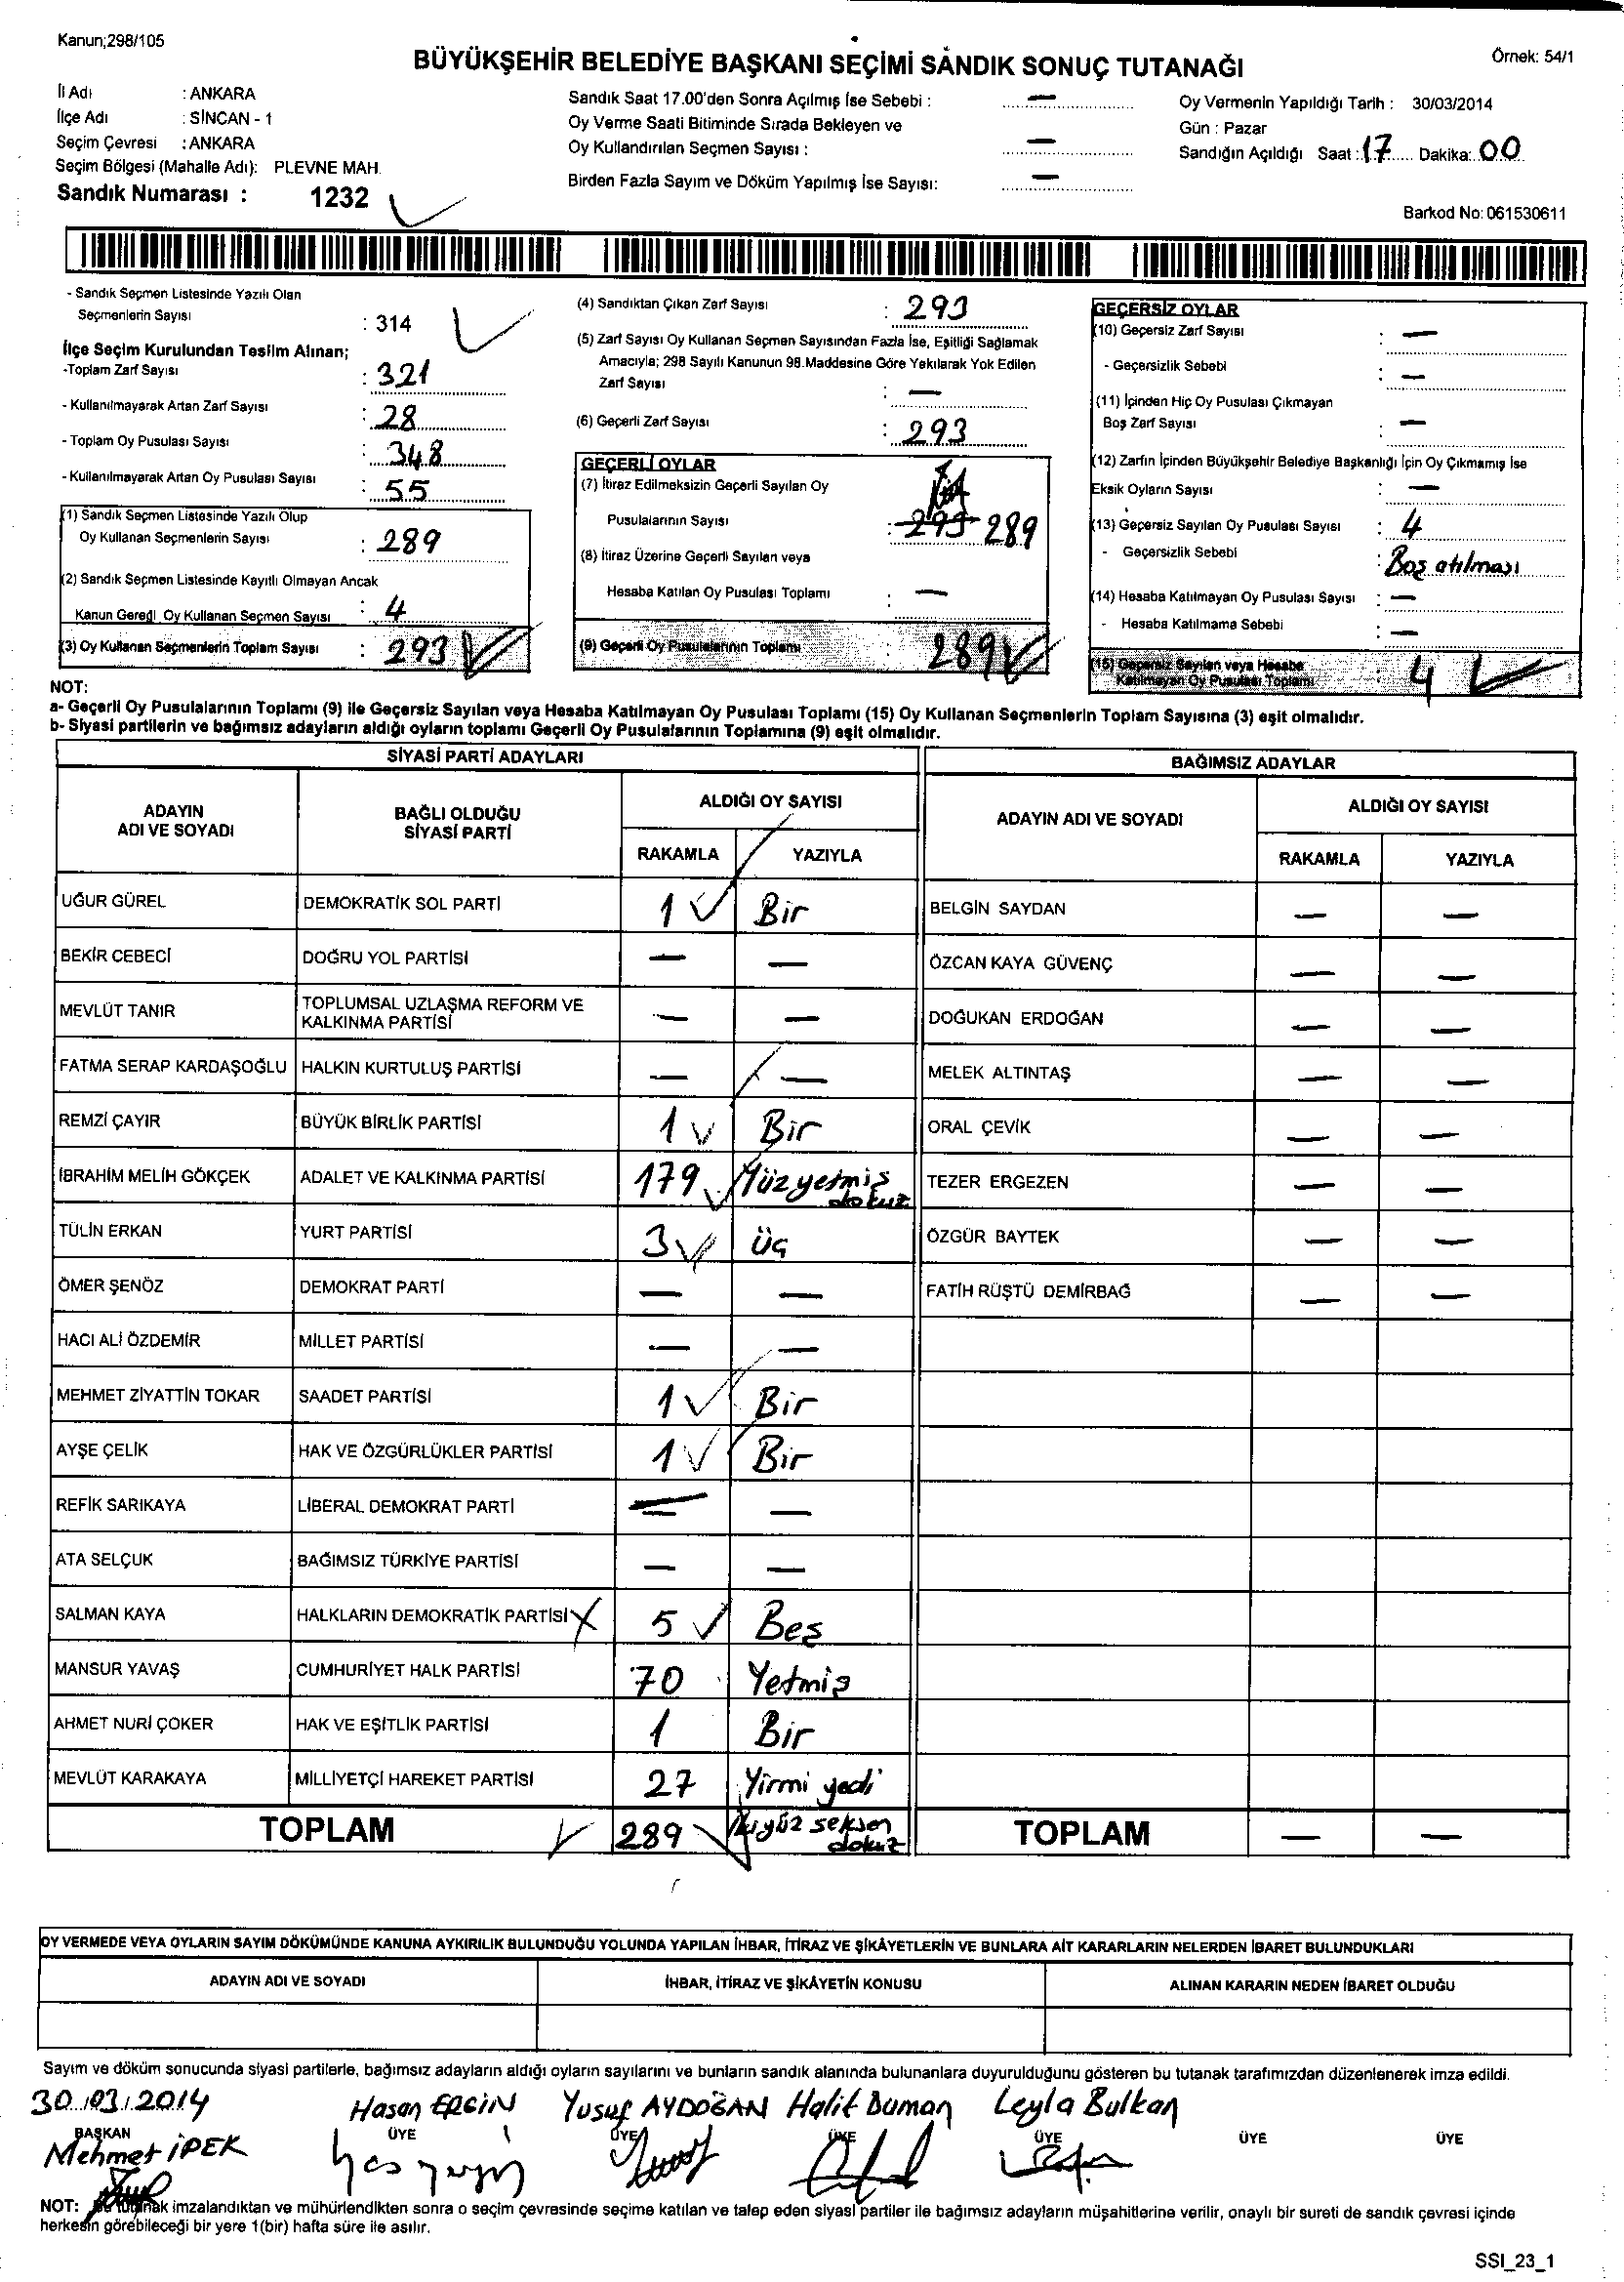 Kanun;298/105
BÜYÜKŞEHİR BELEDİYE BAŞKANI SEÇİMİ SANDIK SONUÇ TUTANAĞI
Örnek: 54/1
İl Adı : ANKARA
İlçe Adı : SİNCAN - 1
Seçim Çevresi : ANKARA
Seçim Bölgesi (Mahalle Adı): PLEVNE MAH.
Sandık Numarası : 1232
Sandık Saat 17.00'den Sonra Açılmış İse Sebebi : —
Oy Verme Saati Bitiminde Sırada Bekleyen ve
Oy Kullandırılan Seçmen Sayısı : —
Birden Fazla Sayım ve Döküm Yapılmış İse Sayısı: —
Oy Vermenin Yapıldığı Tarih : 30/03/2014
Gün : Pazar
Sandığın Açıldığı Saat : 17 Dakika: 00
Barkod No: 061530611
- Sandık Seçmen Listesinde Yazılı Olan
Seçmenlerin Sayısı : 314
İlçe Seçim Kurulundan Teslim Alınan;
-Toplam Zarf Sayısı : 321
- Kullanılmayarak Artan Zarf Sayısı : 28
- Toplam Oy Pusulası Sayısı : 348
- Kullanılmayarak Artan Oy Pusulası Sayısı : 55
(1) Sandık Seçmen Listesinde Yazılı Olup
Oy Kullanan Seçmenlerin Sayısı : 289
(2) Sandık Seçmen Listesinde Kayıtlı Olmayan Ancak
Kanun Gereği Oy Kullanan Seçmen Sayısı : 4
(3) Oy Kullanan Seçmenlerin Toplam Sayısı : 293
(4) Sandıktan Çıkan Zarf Sayısı : 293
(5) Zarf Sayısı Oy Kullanan Seçmen Sayısından Fazla İse, Eşitliği Sağlamak
Amacıyla; 298 Sayılı Kanunun 98.Maddesine Göre Yakılarak Yok Edilen
Zarf Sayısı : —
(6) Geçerli Zarf Sayısı : 293
GEÇERLİ OYLAR
(7) İtiraz Edilmeksizin Geçerli Sayılan Oy
Pusulalarının Sayısı : 293 289
(8) İtiraz Üzerine Geçerli Sayılan veya
Hesaba Katılan Oy Pusulası Toplamı : —
(9) Geçerli Oy Pusulalarının Toplamı : 289
GEÇERSİZ OYLAR
(10) Geçersiz Zarf Sayısı : —
- Geçersizlik Sebebi : —
(11) İçinden Hiç Oy Pusulası Çıkmayan
Boş Zarf Sayısı : —
(12) Zarfın İçinden Büyükşehir Belediye Başkanlığı İçin Oy Çıkmamış İse
Eksik Oyların Sayısı : —
(13) Geçersiz Sayılan Oy Pusulası Sayısı : 4
- Geçersizlik Sebebi : Boş atılması
(14) Hesaba Katılmayan Oy Pusulası Sayısı : —
- Hesaba Katılmama Sebebi : —
(15) Geçersiz Sayılan veya Hesaba
Katılmayan Oy Pusulası Toplamı 4
NOT:
a- Geçerli Oy Pusulalarının Toplamı (9) ile Geçersiz Sayılan veya Hesaba Katılmayan Oy Pusulası Toplamı (15) Oy Kullanan Seçmenlerin Toplam Sayısına (3) eşit olmalıdır.
b- Siyasi partilerin ve bağımsız adayların aldığı oyların toplamı Geçerli Oy Pusulalarının Toplamına (9) eşit olmalıdır.
SİYASİ PARTİ ADAYLARI
ADAYIN ADI VE SOYADI
BAĞLI OLDUĞU SİYASİ PARTİ
ALDIĞI OY SAYISI
RAKAMLA YAZIYLA
UĞUR GÜREL DEMOKRATİK SOL PARTİ 1 Bir
BEKİR CEBECİ DOĞRU YOL PARTİSİ — —
MEVLÜT TANIR TOPLUMSAL UZLAŞMA REFORM VE KALKINMA PARTİSİ — —
FATMA SERAP KARDAŞOĞLU HALKIN KURTULUŞ PARTİSİ — —
REMZİ ÇAYIR BÜYÜK BİRLİK PARTİSİ 1 Bir
İBRAHİM MELİH GÖKÇEK ADALET VE KALKINMA PARTİSİ 179 Yüzyetmiş dokuz
TÜLİN ERKAN YURT PARTİSİ 3 Üç
ÖMER ŞENÖZ DEMOKRAT PARTİ — —
HACI ALİ ÖZDEMİR MİLLET PARTİSİ — —
MEHMET ZİYATTİN TOKAR SAADET PARTİSİ 1 Bir
AYŞE ÇELİK HAK VE ÖZGÜRLÜKLER PARTİSİ 1 Bir
REFİK SARIKAYA LİBERAL DEMOKRAT PARTİ — —
ATA SELÇUK BAĞIMSIZ TÜRKİYE PARTİSİ — —
SALMAN KAYA HALKLARIN DEMOKRATİK PARTİSİ 5 Beş
MANSUR YAVAŞ CUMHURİYET HALK PARTİSİ 70 Yetmiş
AHMET NURİ ÇOKER HAK VE EŞİTLİK PARTİSİ 1 Bir
MEVLÜT KARAKAYA MİLLİYETÇİ HAREKET PARTİSİ 27 Yirmi yedi
TOPLAM 289 İkiyüz seksen dokuz
BAĞIMSIZ ADAYLAR
ADAYIN ADI VE SOYADI
ALDIĞI OY SAYISI
RAKAMLA YAZIYLA
BELGİN SAYDAN — —
ÖZCAN KAYA GÜVENÇ — —
DOĞUKAN ERDOĞAN — —
MELEK ALTINTAŞ — —
ORAL ÇEVİK — —
TEZER ERGEZEN — —
ÖZGÜR BAYTEK — —
FATİH RÜŞTÜ DEMİRBAĞ — —
TOPLAM — —
OY VERMEDE VEYA OYLARIN SAYIM DÖKÜMÜNDE KANUNA AYKIRILIK BULUNDUĞU YOLUNDA YAPILAN İHBAR, İTİRAZ VE ŞİKÂYETLERİN VE BUNLARA AİT KARARLARIN NELERDEN İBARET BULUNDUKLARI
ADAYIN ADI VE SOYADI İHBAR, İTİRAZ VE ŞİKÂYETİN KONUSU ALINAN KARARIN NEDEN İBARET OLDUĞU
Sayım ve döküm sonucunda siyasi partilerle, bağımsız adayların aldığı oyların sayılarını ve bunların sandık alanında bulunanlara duyurulduğunu gösteren bu tutanak tarafımızdan düzenlenerek imza edildi.
30.03.2014 Hasan ERGİN Yusuf AYDOĞAN Halit Duman Leyla Bulkan
BAŞKAN ÜYE ÜYE ÜYE ÜYE ÜYE ÜYE
Mehmet İPEK
NOT: Bu tutanak imzalandıktan ve mühürlendikten sonra o seçim çevresinde seçime katılan ve talep eden siyasi partiler ile bağımsız adayların müşahitlerine verilir, onaylı bir sureti de sandık çevresi içinde
herkesin görebileceği bir yere 1(bir) hafta süre ile asılır.
SSI_23_1